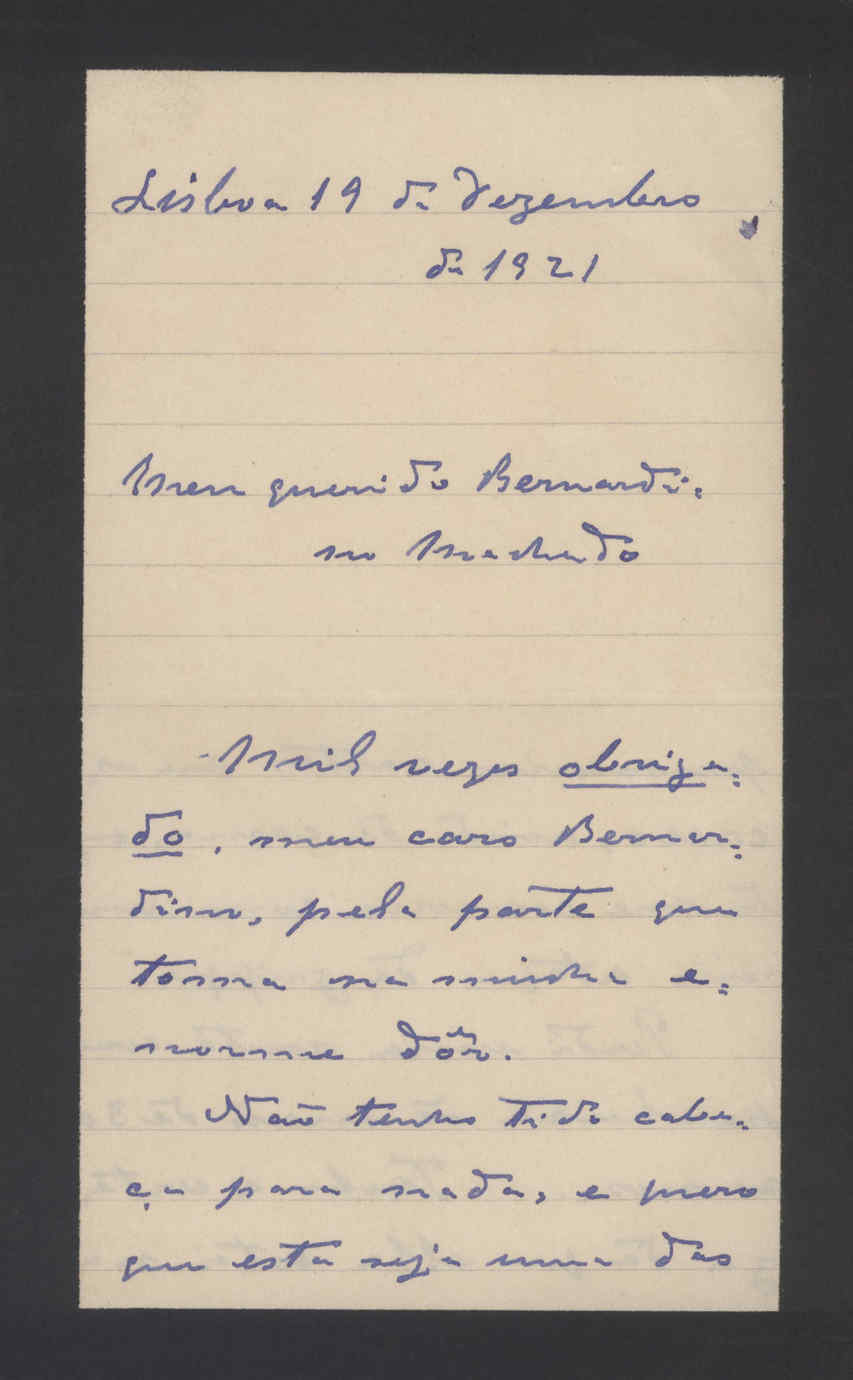 Lisboa 19 de Dezembro
de 1921
Meu querido Bernardi=
no Machado
Mil vezes obriga=
do, meu caro Bernar=
dino, pela parte que
toma na minha e=
norme dôr.
Não tenho tido cabe=
ça para nada, e quero
que esta seja uma das